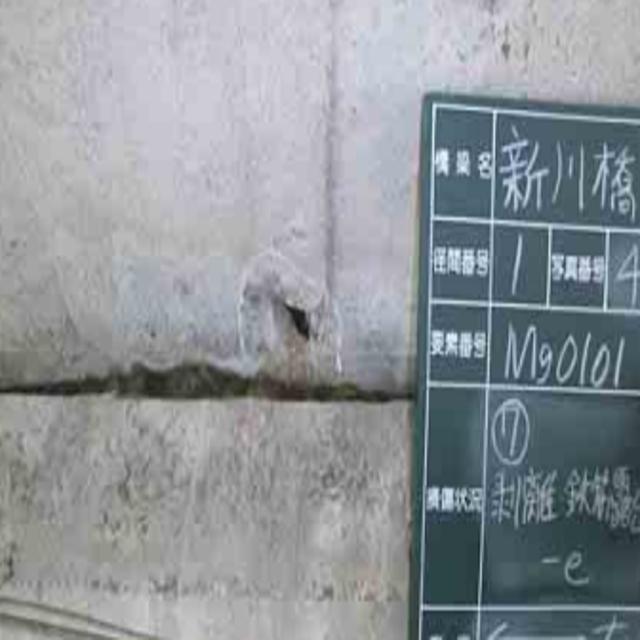 橋梁名 新川橋
径間番号 1 写真番号 4
要素番号 Mg0101
⑦
損傷状況 剥離 鉄筋露
-e